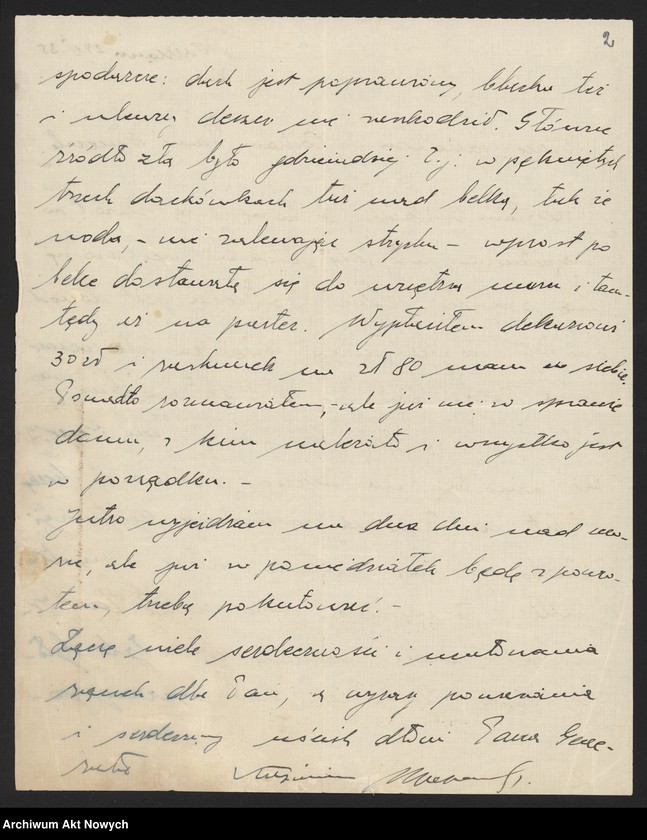 2
spodarcze: dach jest poprawiony, blacha też
i ulewny deszcz nie zaszkodził. Główne
źródło zła było gdzieindziej t.j. w pękniętych
trzech dachówkach tuż nad belką, tak że
woda, - nie zalewając strychu - wprost po
belce dostawała się do wnętrza muru i tam-
tędy aż na parter. Wypłaciłem dekarzowi
30 zł i rachunek na zł 80 mam u siebie.
Ponadto rozmawiałem, - ale już nie w sprawie
dachu, z kim należało i wszystko jest
w porządku. -
Jutro wyjeżdżam na dwa dni nad mo-
rze, ale już w poniedziałek będę z powro-
tem, trzeba pokutować. -
Łączę wiele serdeczności i ucałowania
rączek dla Pań, a wyrazy poważania
i serdeczny uścisk dłoni Pana Gene-
rała
Archiwum Akt Nowych